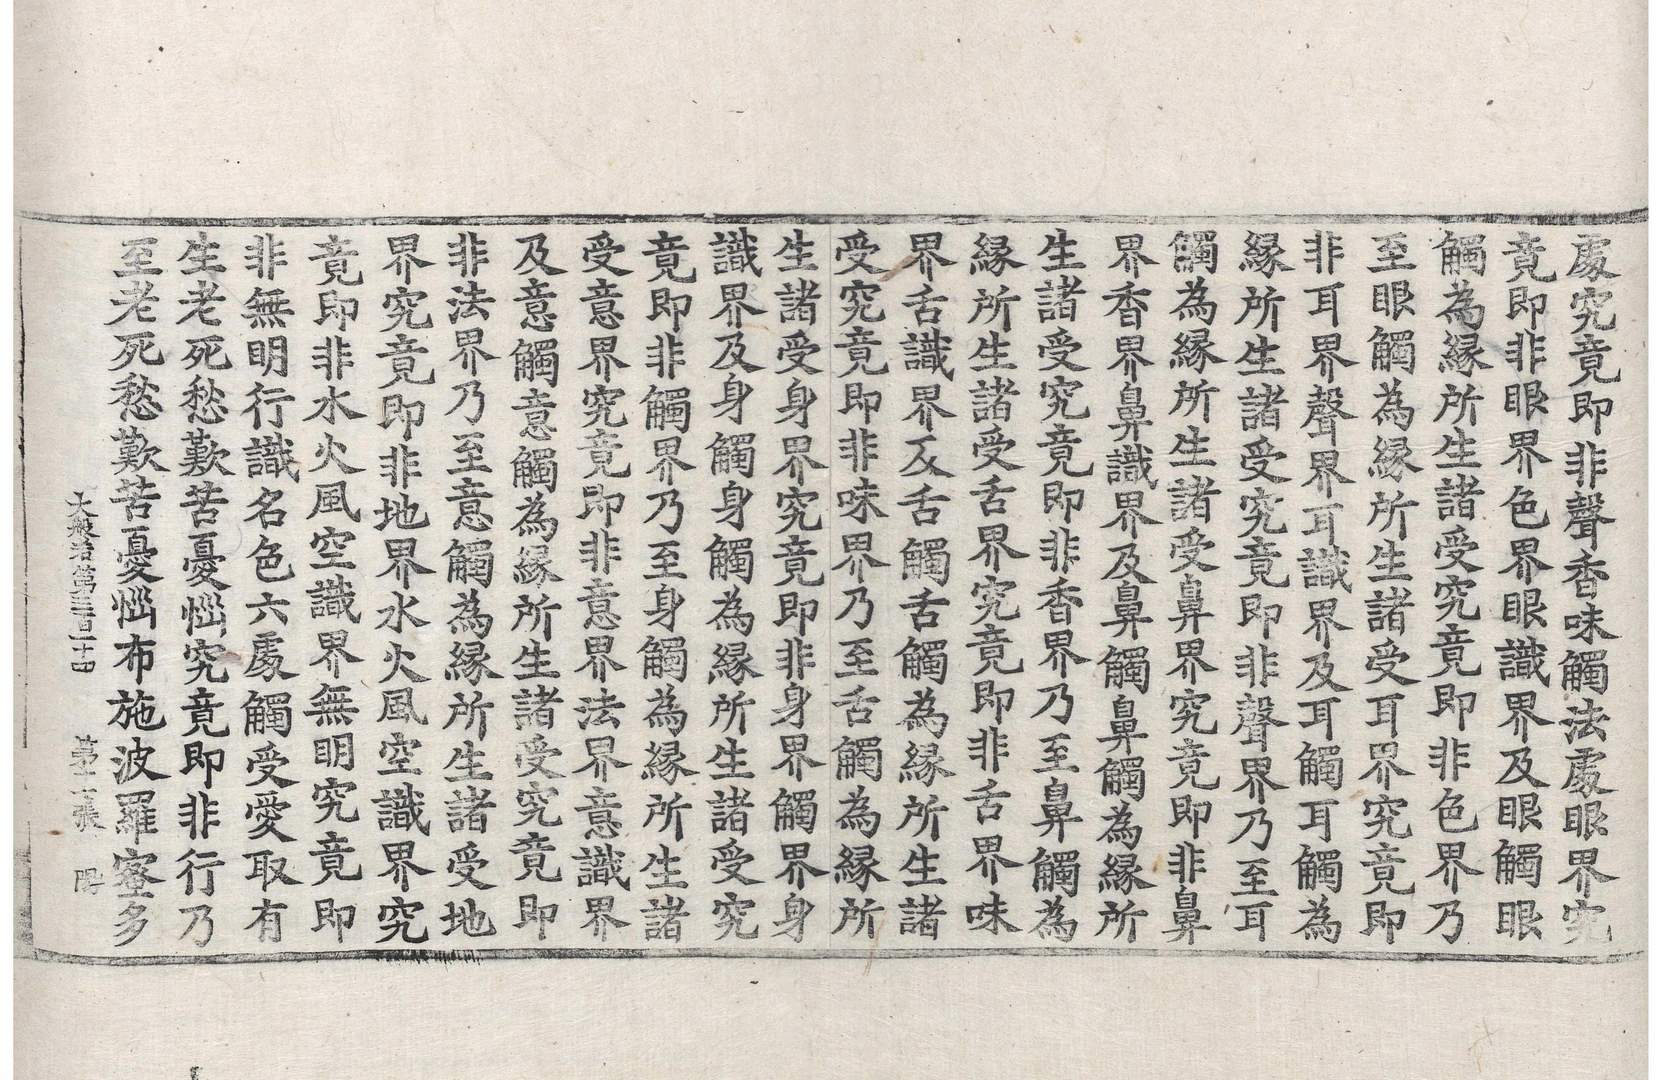 處究竟即非聲香味觸法處眼界究
竟即非眼界色界眼識界及眼觸眼
觸為縁所生諸受究竟即非色界乃
至眼觸為縁所生諸受耳界究竟即
非耳界聲界耳識界及耳觸耳觸為
縁所生諸受究竟即非聲界乃至耳
觸為縁所生諸受鼻界究竟即非鼻
界香界鼻識界及鼻觸鼻觸為縁所
生諸受究竟即非香界乃至鼻觸為
縁所生諸受舌界究竟即非舌界味
界舌識界及舌觸舌觸為縁所生諸
受究竟即非味界乃至舌觸為縁所
生諸受身界究竟即非身界觸界身
識界及身觸身觸為縁所生諸受究
竟即非觸界乃至身觸為縁所生諸
受意界究竟即非意界法界意識界
及意觸意觸為縁所生諸受究竟即
非法界乃至意觸為縁所生諸受地
界究竟即非地界水火風空識界究
竟即非水火風空識界無明究竟即
非無明行識名色六處觸受愛取有
生老死愁歎苦憂惱究竟即非行乃
至老死愁歎苦憂惱布施波羅蜜多
大般若第三百一十四 第十一張 陽